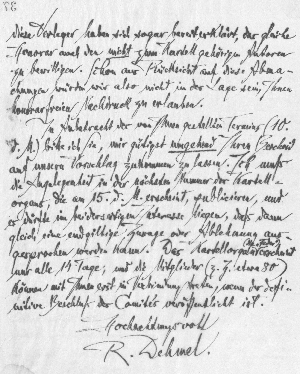 37
diese Verleger haben sich sogar bereit erklärt, das gleiche
Honorar auch den nicht zum Kartell gehörigen Autoren
zu bewilligen. Schon aus Rücksicht auf diese Abma-
chungen würden wir also nicht in der Lage sein, Ihnen
honorarfreien Nachdruck zu erlauben.
In Anbetracht des von Ihnen gestellten Termins (10.
d. M.) bitte ich , mir gütigst umgehend Ihren Bescheid
auf unsern Vorschlag zukommen zu lassen. Ich muß
die Angelegenheit in der nächsten Nummer des Kartell-
organs, die am 15. d. M. erscheint, publicieren, und
es dürfte im beiderseitigen Interesse liegen, daß dann
gleich eine endgiltige Zusage oder Ablehnung aus-
gesprochen werden kann. Das Kartellorgan erscheint
nur alle 14 Tage; und die Mitglieder (z. Z. etwa 80)
können mit Ihnen erst in Verbindung treten, wenn der defi-
nitive Beschluß des Comités veröffentlicht ist.
Hochachtungsvoll
R. Dehmel.